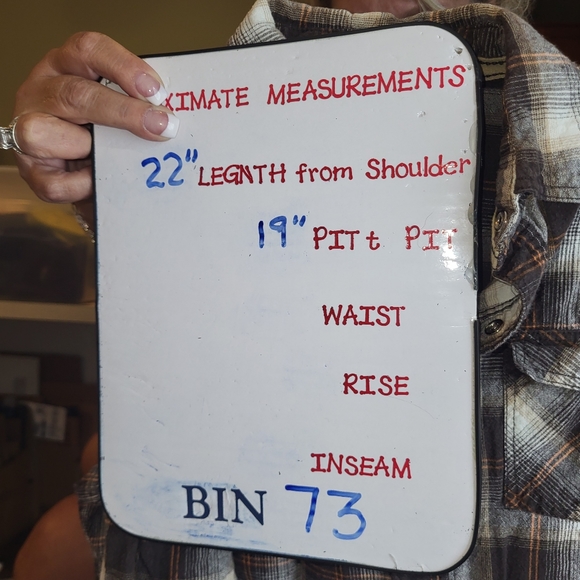 XIMATE MEASUREMENTS
22" LEGNTH from Shoulder
19" PIT t PIT
WAIST
RISE
INSEAM
BIN 73